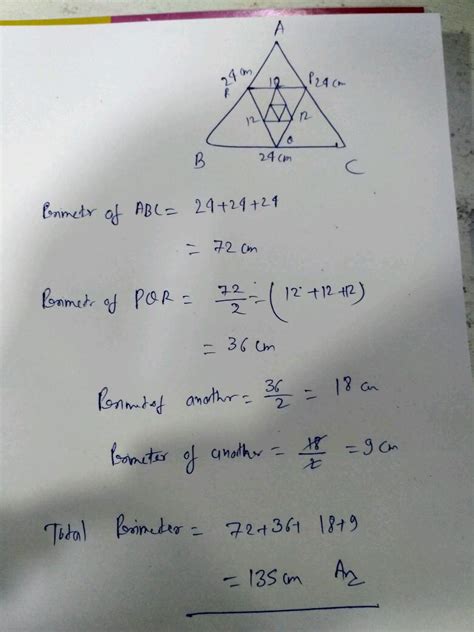 A
24cm
12
P 24cm
R
12
12
Q
B
24cm
C
Perimetr of ABC = 24+24+24
= 72 cm
Perimetr of PQR = 72/2 = (12+12+12)
= 36 cm
Perimet of another = 36/2 = 18 cm
Perimeter of another = 18/2 = 9 cm
Total Perimeter = 72+36+ 18+9
= 135 cm Ans